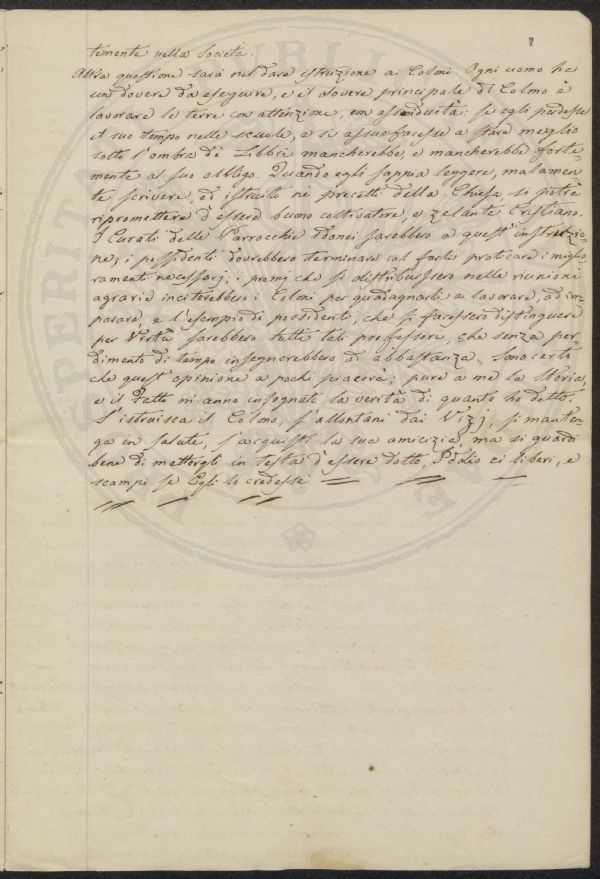 7
temente nella Società.
Altra questione sarà nel dare istruzione ai Coloni. Ogni uomo ha
un dovere da eseguire, e il dovere principale di Colono è
lavorare le terre con attenzione, con assiduità: se egli perdesse
il suo tempo nelle scuole, e si assuefacesse a stare meglio
sotto l'ombra di Libbri mancherebbe, e mancherebbe forte-
mente al suo obbligo. Quando egli sappia leggere, malamen-
te scrivere, ed istruito nè precetti della Chiesa si potrà
ripromettere d'essere buono coltivatore, e zelante Cristiano.
I Curati delle Parrocchie idonei sarebbero a quest'instruzio-
ne; i possidenti dovrebbero terminare col farle praticare i miglio
ramenti necessarj; i premj che si distribuissero nelle riunioni
agrarie inciterebbero i Coloni per guadagnarli a lavorare, ad im-
parare, e l'esempio di possidenti, che si facessero distinguere
per Virtù sarebbero tutti tali professori, che senza per-
dimento di tempo insegnerebbero di abbastanza. Sono certo
che quest'opinione a pochi piacerà; pure a me la Storia,
e il Fatto m'anno insegnato la verità di quanto ho detto.
S'istruisca il Colono, s'allontani dai Vizj, si manten-
ga in salute, s'acquisti la sua amicizia, ma si guardi
bene di mettergli in testa d'essere dotto, Iddio ci liberi, e
scampi se Egli lo credesse